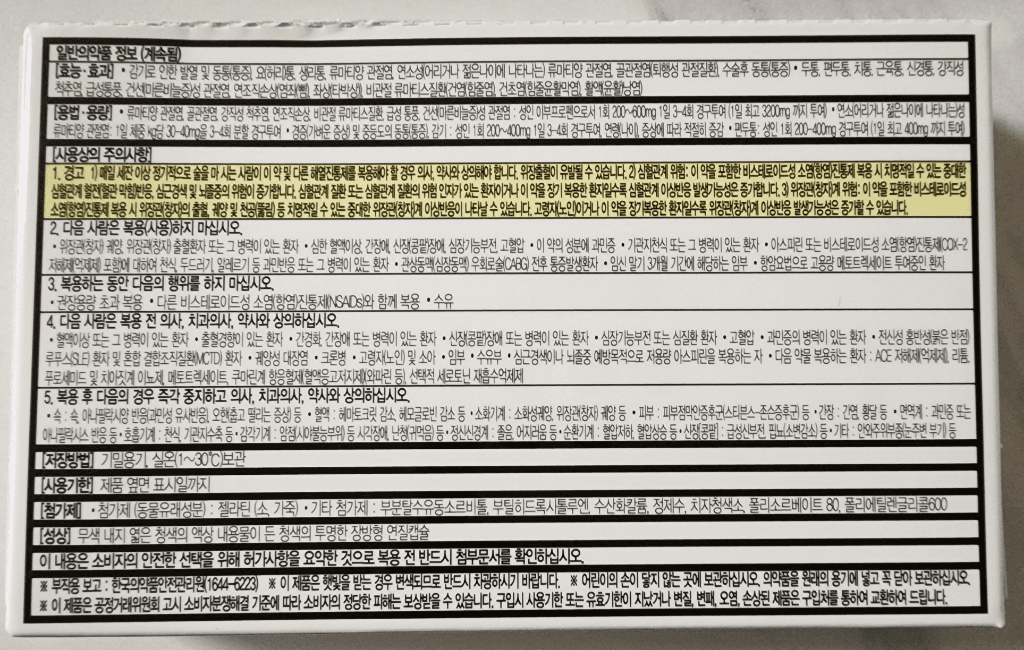 일반의약품 정보 (계속됨)
[효능·효과] • 감기로 인한 발열 및 동통(통증), 요(허리)통, 생리통, 류마티양 관절염, 연소성(어리거나 젊은나이에 나타나는) 류마티양 관절염, 골관절염(퇴행성 관절질환), 수술후 동통(통증) • 두통, 편두통, 치통, 근육통, 신경통, 강직성
척추염, 급성통풍, 건선(마른비늘증)성 관절염, 연조직손상(염좌(삠), 좌상(타박상)), 비관절 류마티스질환(건염(힘줄염), 건초염(힘줄윤활막염), 활액낭(윤활낭)염)
[용법·용량] 류마티양 관절염, 골관절염, 강직성 척추염, 연조직손상, 비관절 류마티스질환, 급성 통풍, 건선(마른비늘증)성 관절염 : 성인 이부프로펜으로서 1회 200~600mg 1일 3~4회 경구투여 (1일 최고 3200mg 까지 투여) • 연소성(어리거나 젊은나이에 나타나는)성
류마티양 관절염 : 1일 체중 kg당 30~40mg을 3~4회 분할 경구투여 • 경증(가벼운 증상) 및 중등도의 동통(통증), 감기 : 성인 1회 200~400mg 1일 3~4회 경구투여, 연령(나이), 증상에 따라 적절히 증감 • 편두통: 성인 1회 200~400mg 경구투여 (1일 최고 400mg 까지 투여)
[사용상의 주의사항]
1. 경고 1) 매일 세잔 이상 정기적으로 술을 마시는 사람이 이 약 및 다른 해열진통제를 복용해야 할 경우 의사, 약사와 상의해야 합니다. 위장출혈이 유발될 수 있습니다. 2) 심혈관계 위험 : 이 약을 포함한 비스테로이드성 소염(항염)진통제 복용 시 치명적일 수 있는 중대한
심혈관계 혈전(혈관 막힘)반응, 심근경색 및 뇌졸중의 위험이 증가합니다. 심혈관계 질환 또는 심혈관계 질환의 위험 인자가 있는 환자이거나 이 약을 장기 복용한 환자일수록 심혈관계 이상반응 발생가능성은 증가합니다. 3) 위장관(창자)계 위험 : 이 약을 포함한 비스테로이드성
소염(항염)진통제 복용 시 위장관(창자)의 출혈, 궤양 및 천공(뚫림) 등 치명적일 수 있는 중대한 위장관(창자)계 이상반응이 나타날 수 있습니다. 고령자(노인)이거나 이 약을 장기복용한 환자일수록 위장관(창자)계 이상반응 발생가능성은 증가할 수 있습니다.
2. 다음 사람은 복용(사용)하지 마십시오.
• 위장관(창자) 궤양, 위장관(창자) 출혈환자 또는 그 병력이 있는 환자 • 심한 혈액이상, 간장애, 신장(콩팥)장애, 심장기능부전, 고혈압 • 이 약의 성분에 과민증 • 기관지천식 또는 그 병력이 있는 환자 • 아스피린 또는 비스테로이드성 소염(항염)진통제(COX-2
저해제(억제제) 포함)에 대하여 천식, 두드러기, 알레르기 등 과민반응 또는 그 병력이 있는 환자 • 관상동맥(심장동맥) 우회로술(CABG) 전후 통증발생환자 • 임신 말기 3개월 기간에 해당하는 임부 • 항암요법으로 고용량 메토트렉세이트 투여중인 환자
3. 복용하는 동안 다음의 행위를 하지 마십시오.
• 권장용량 초과 복용 • 다른 비스테로이드성 소염(항염)진통제(NSAIDs)와 함께 복용 • 수유
4. 다음 사람은 복용 전 의사, 치과의사, 약사와 상의하십시오.
• 혈액이상 또는 그 병력이 있는 환자 • 출혈경향이 있는 환자 • 간경화, 간장애 또는 병력이 있는 환자 • 신장(콩팥)장애 또는 병력이 있는 환자 • 심장기능부전 또는 심질환 환자 • 고혈압 • 과민증의 병력이 있는 환자 • 전신성 홍반성(붉은 반점)
루푸스(SLE) 환자 및 혼합 결합조직질환(MCTD) 환자 • 궤양성 대장염 • 크론병 • 고령자(노인) 및 소아 • 임부 • 수유부 • 심근경색이나 뇌졸중 예방목적으로 저용량 아스피린을 복용하는 자 • 다음 약을 복용하는 환자 : ACE 저해제(억제제), 리튬,
푸로세미드 및 치아짓계 이뇨제, 메토트렉세이트, 쿠마린계 항응혈제(혈액응고저지제)(와파린 등), 선택적 세로토닌 재흡수억제제
5. 복용 후 다음의 경우 즉각 중지하고 의사, 치과의사, 약사와 상의하십시오.
• 쇽 : 쇽, 아나필락시양 반응(과민성 유사반응), 오한(춥고 떨리는 증상) 등 • 혈액 : 헤마토크릿 감소, 헤모글로빈 감소 등 • 소화기계 : 소화성궤양, 위장관(창자) 궤양 등 • 피부 : 피부점막안증후군(스티븐스-존슨증후군) 등 • 간장 : 간염, 황달 등 • 면역계 : 과민증 또는
아나필락시스 반응 등 • 호흡기계 : 천식, 기관지수축 등 • 감각기계 : 암점(시야불능부위) 등 시각장애, 난청(귀먹음) 등 • 정신신경계 : 졸음, 어지러움 등 • 순환기계 : 혈압저하, 혈압상승 등 • 신장(콩팥) : 급성신부전, 핍뇨(소변감소) 등 • 기타 : 안와주위부종(눈주변 부기) 등
[저장방법] 기밀용기, 실온(1~30℃)보관
[사용기한] 제품 옆면 표시일까지
[첨가제] • 첨가제 (동물유래성분) : 젤라틴 (소, 가죽) • 기타 첨가제 : 부분탈수유동소르비톨, 부틸히드록시톨루엔, 수산화칼륨, 정제수, 치자청색소, 폴리소르베이트 80, 폴리에틸렌글리콜600
[성상] 무색 내지 엷은 청색의 액상 내용물이 든 청색의 투명한 장방형 연질캡슐
이 내용은 소비자의 안전한 선택을 위해 허가사항을 요약한 것으로 복용 전 반드시 첨부문서를 확인하십시오.
※ 부작용 보고 : 한국의약품안전관리원(1644-6223) ※ 이 제품은 햇빛을 받는 경우 변색되므로 반드시 차광하시기 바랍니다. ※ 어린이의 손이 닿지 않는 곳에 보관하십시오. 의약품을 원래의 용기에 넣고 꼭 닫아 보관하십시오.
※ 이 제품은 공정거래위원회 고시 소비자분쟁해결 기준에 따라 소비자의 정당한 피해는 보상받을 수 있습니다. 구입시 사용기한 또는 유효기한이 지났거나 변질, 변패, 오염, 손상된 제품은 구입처를 통하여 교환하여 드립니다.